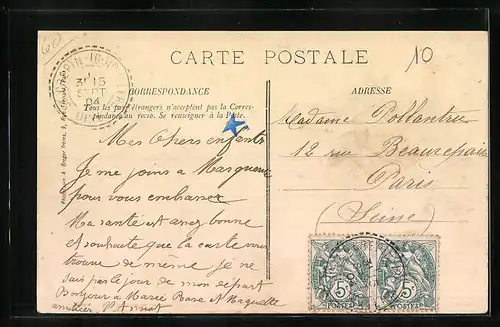 60
CARTE POSTALE
10
CORRESPONDANCE
ADRESSE
Tous les pays étrangers n'acceptent pas la Corres-
pondance au recto. Se renseigner à la Poste.
15
SEPT
04
Mes Chers enfants
Je me joins a
pour vous embrasser
Ma santé est assez bonne
et souhaite que la carte vous
trouve de même je ne
sais pas le jour de mon départ
Bonjour a Marie Rose
amitiés
Madame
12 rue Beaurepaire
Paris
(Seine)
5c 5c
POSTES POSTES